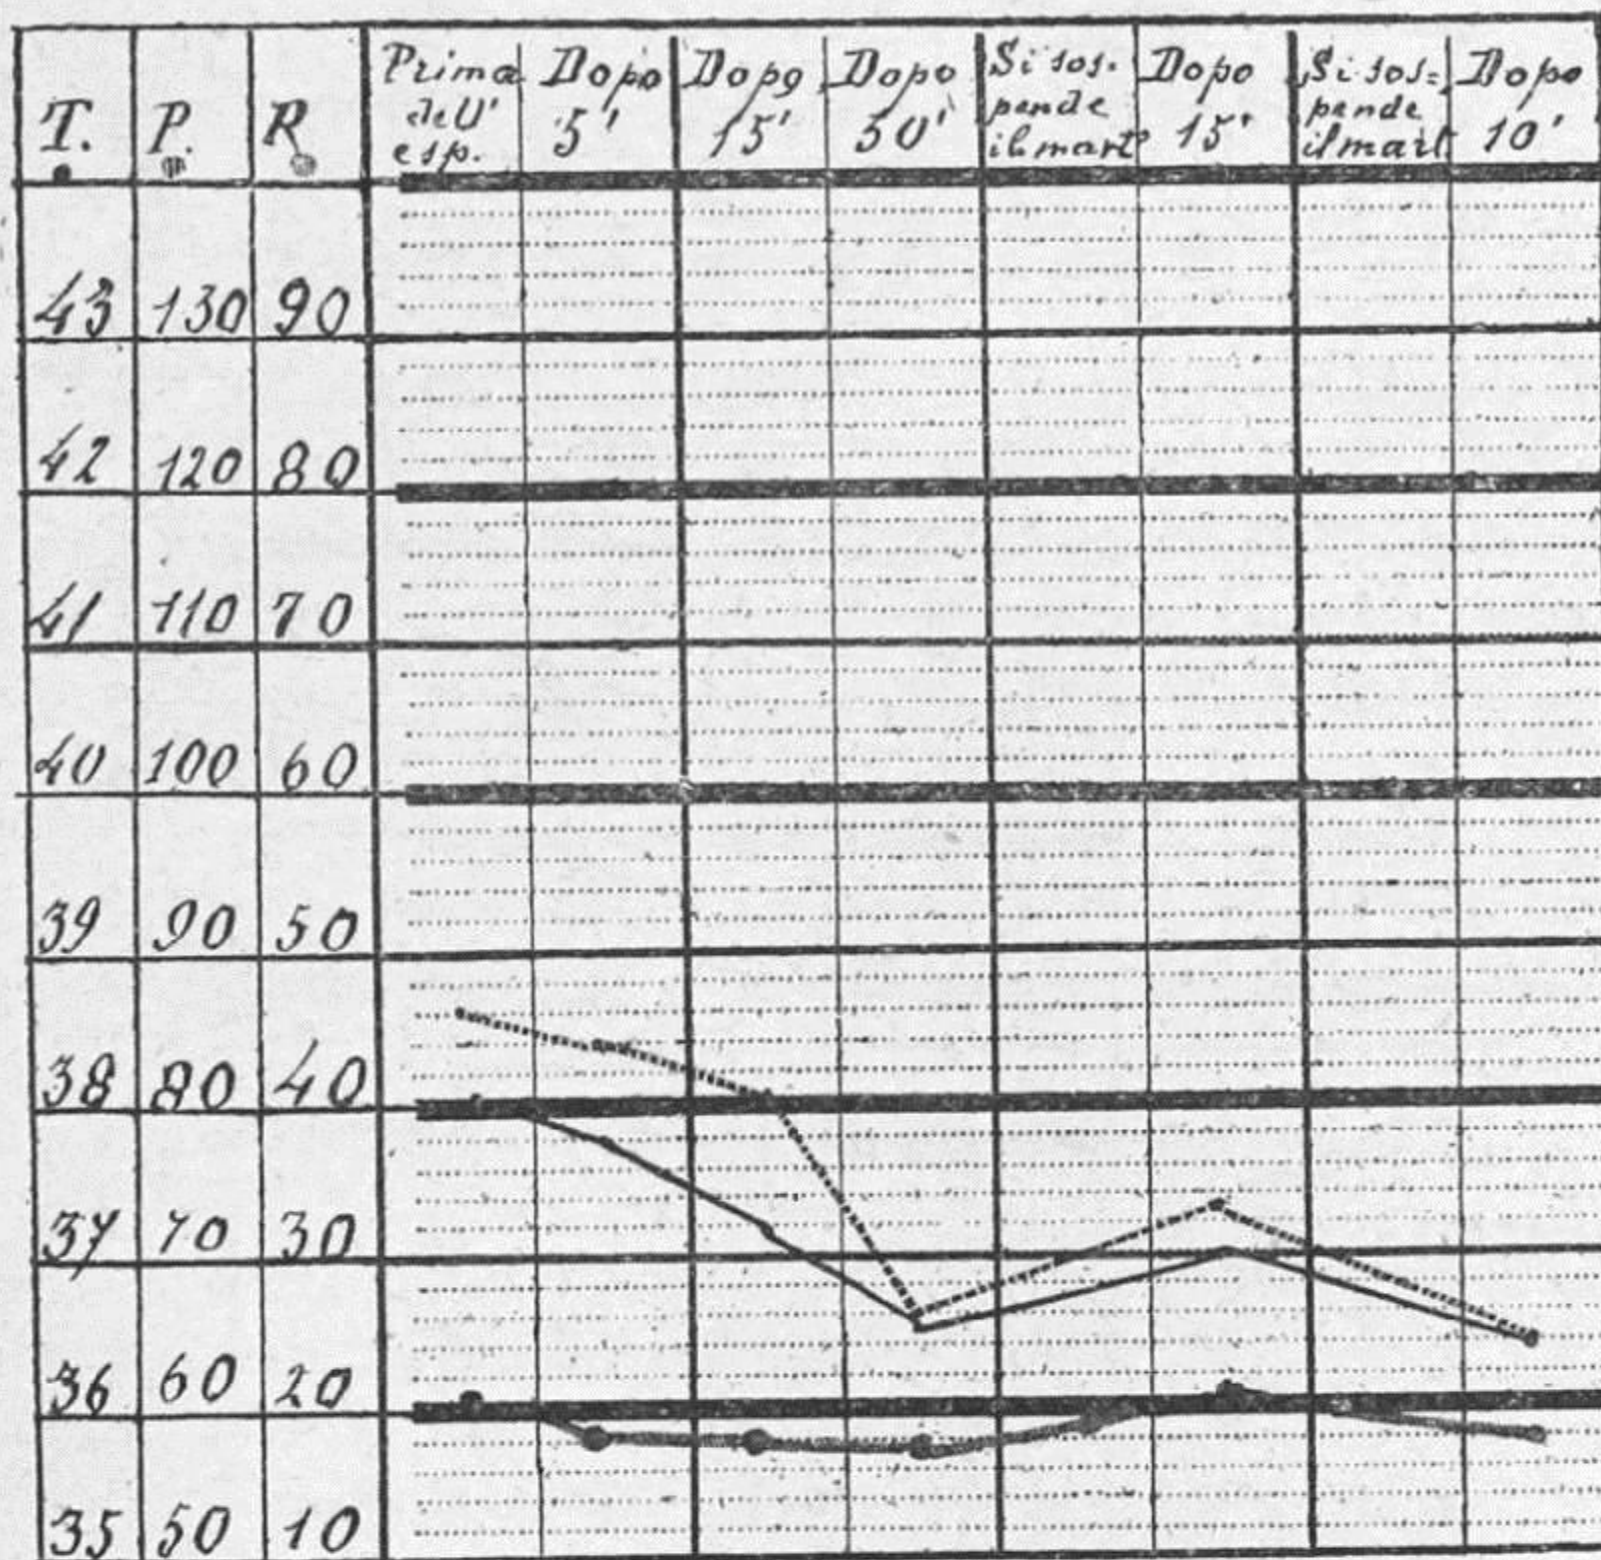 T. P. R.
Prima dell' esp.
Dopo 5'
Dopo 15'
Dopo 50'
Si sos- pende il mart°
Dopo 15'
Si sos= pende il mart
Dopo 10'
43 130 90
42 120 80
41 110 70
40 100 60
39 90 50
38 80 40
37 70 30
36 60 20
35 50 10